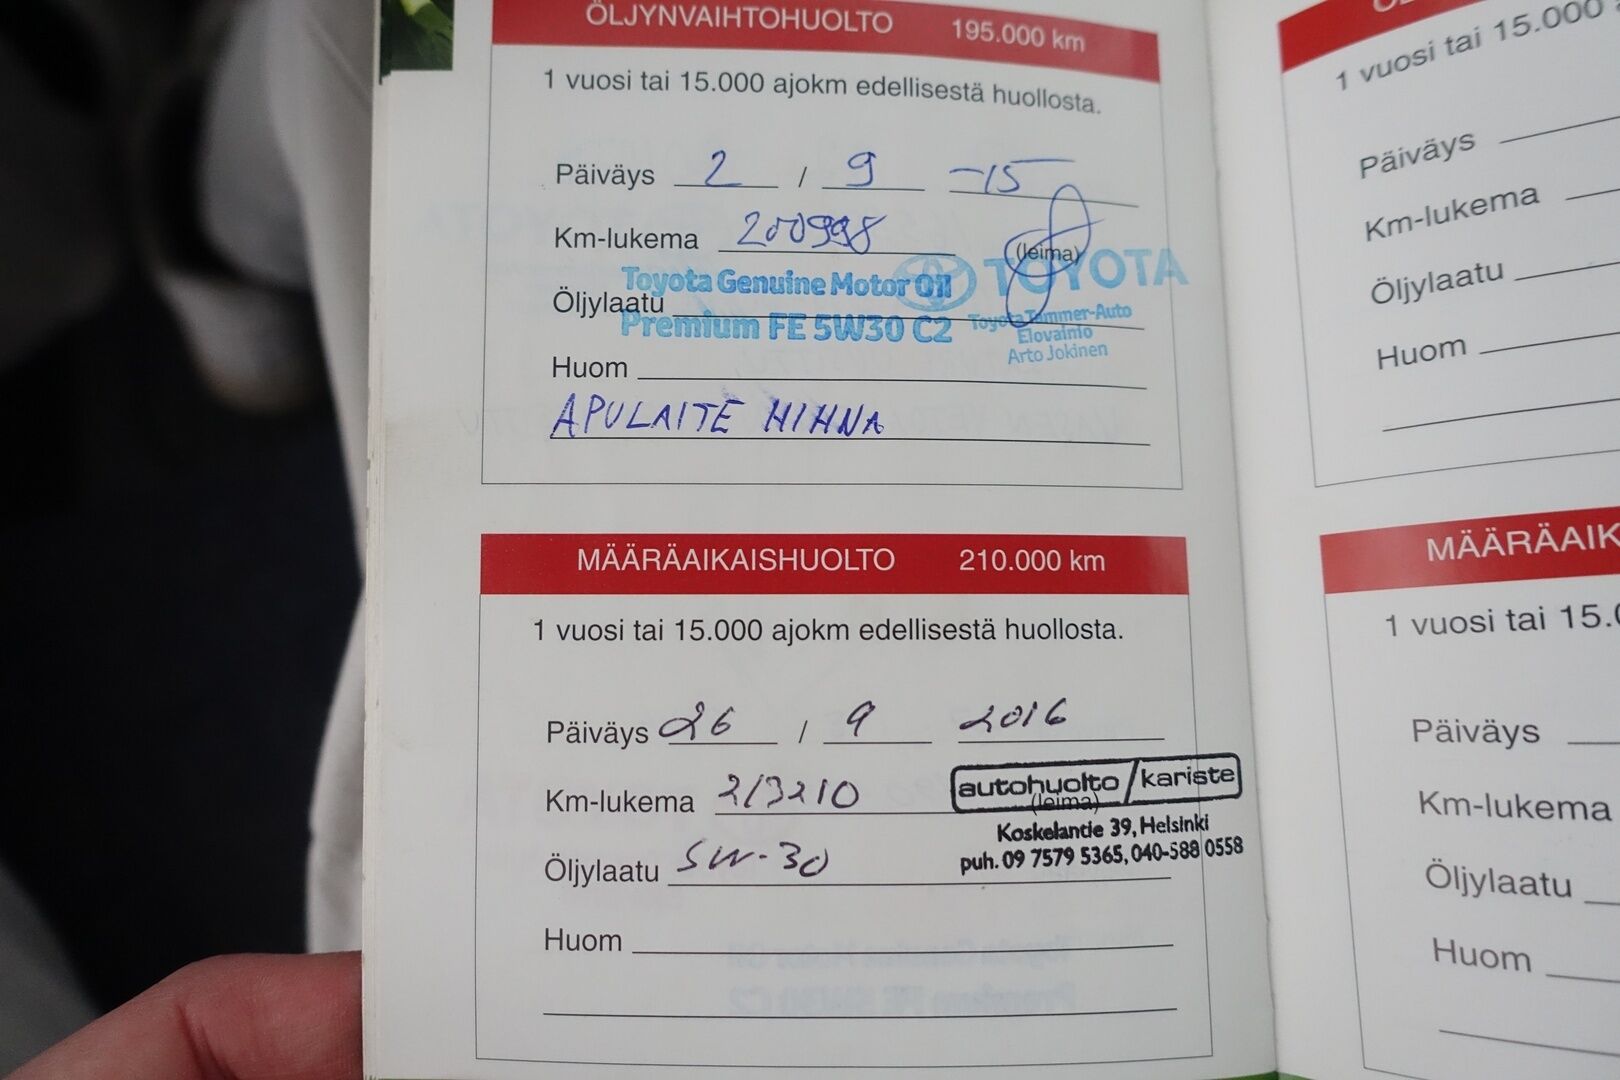 ÖLJYNVAIHTOHUOLTO 195.000 km
1 vuosi tai 15.000 ajokm edellisestä huollosta.
Päiväys 2 / 9 -15
Km-lukema 200998 (leima)
Toyota Genuine Motor Oil TOYOTA
Öljylaatu
Premium FE 5W30 C2 Toyota Tammer-Auto
Elovainio
Arto Jokinen
Huom
APULAITE HIHNA
MÄÄRÄAIKAISHUOLTO 210.000 km
1 vuosi tai 15.000 ajokm edellisestä huollosta.
Päiväys 26 / 9 2016
Km-lukema 213210 autohuolto/kariste
(leima)
Koskelantie 39, Helsinki
Öljylaatu 5W-30 puh. 09 7579 5365, 040-588 0558
Huom
1 vuosi tai 15.000
Päiväys
Km-lukema
Öljylaatu
Huom
MÄÄRÄAIK
1 vuosi tai 15.0
Päiväys
Km-lukema
Öljylaatu
Huom